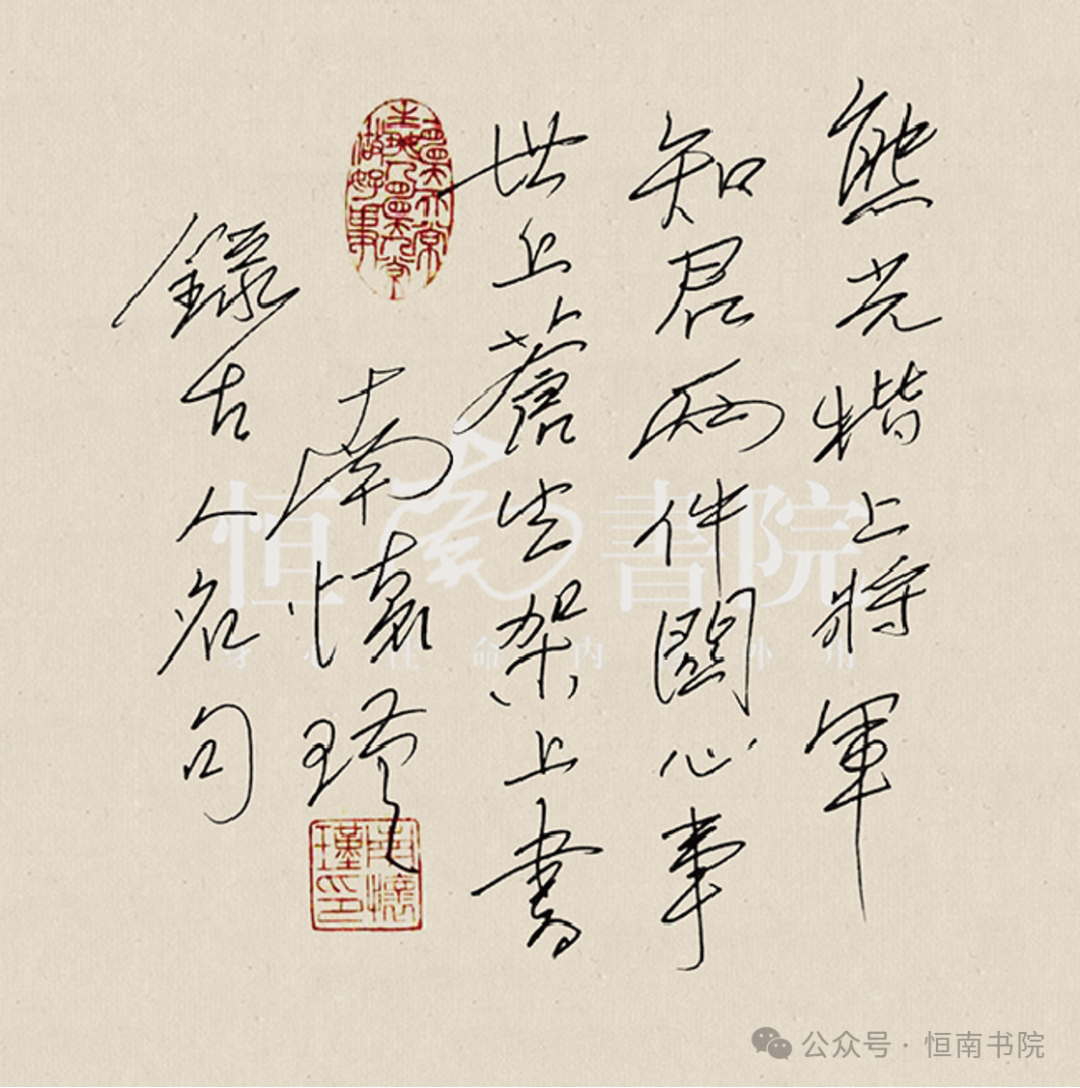 熊光楷上將軍
知君兩件關心事
世上蒼生架上書
南懷瑾
錄古人名句
南懷瑾印
恒南書院
公众号·恒南书院